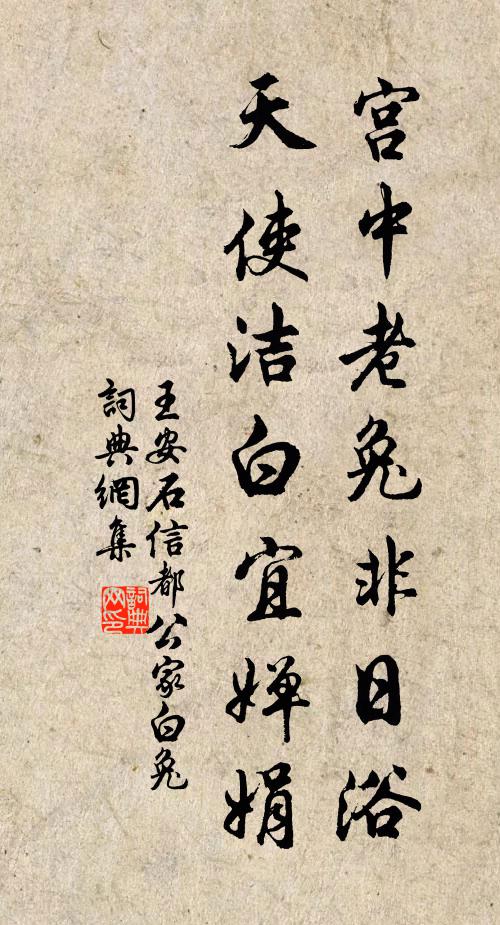 宫中老兔非日浴
天使洁白宜婵娟
王安石信都公家白兔
詞典網集
詞典
网印